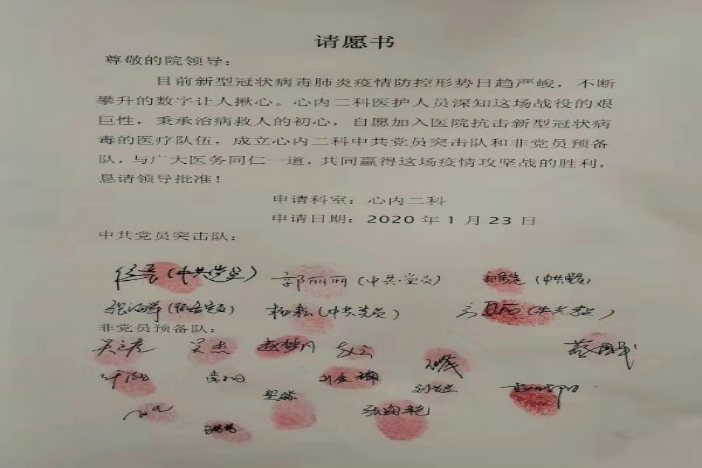 请愿书
尊敬的院领导：
目前新型冠状病毒肺炎疫情防控形势日趋严峻，不断
攀升的数字让人揪心。心内二科医护人员深知这场战役的艰
巨性，秉承治病救人的初心，自愿加入医院抗击新型冠状病
毒的医疗队伍，成立心内二科中共党员突击队和非党员预备
队，与广大医务同仁一道，共同赢得这场疫情攻坚战的胜利，
恳请领导批准！
申请科室：心内二科
申请日期：2020 年 1 月 23 日
中共党员突击队：
（中共党员） 郭丽丽（中共党员） （中共党员）
（中共党员）
非党员预备队：
吴杰